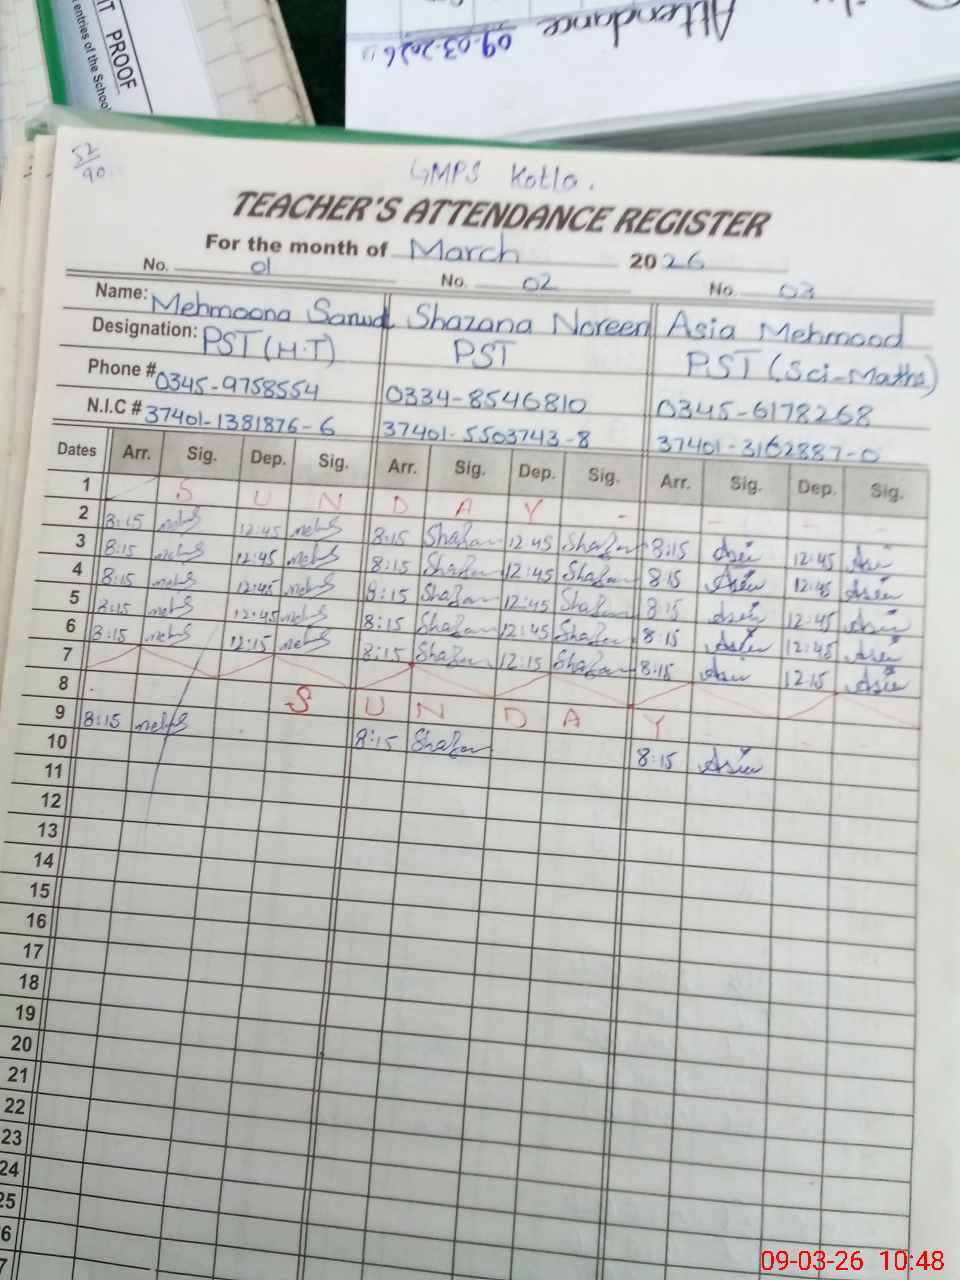 IT PROOF
entries of the School
Attendance
09-03-2026
52/90
GMPS Kotla.
TEACHER'S ATTENDANCE REGISTER
For the month of March 2026
No. 01 No. 02 No. 03
Name: Mehmoona Sarwal Shazana Noreen Asia Mehmood
Designation: PST (H.T) PST PST (Sci-Maths)
Phone # 0345-9758554 0334-8546810 0345-6178268
N.I.C # 37401-1381876-6 37401-5503743-8 37401-3162887-0
Dates Arr. Sig. Dep. Sig. Arr. Sig. Dep. Sig. Arr. Sig. Dep. Sig.
1 S U N D A Y - - - - -
2 8:15 mehS 12:45 mehS 8:15 Shazan 12:45 Shazan 8:15 Asia 12:45 Asia
3 8:15 mehS 12:45 mehS 8:15 Shazan 12:45 Shazan 8:15 Asia 12:45 Asia
4 8:15 mehS 12:45 mehS 8:15 Shazan 12:45 Shazan 8:15 Asia 12:45 Asia
5 8:15 mehS 12:45 mehS 8:15 Shazan 12:45 Shazan 8:15 Asia 12:45 Asia
6 8:15 mehS 12:15 mehS 8:15 Shazan 12:15 Shazan 8:15 Asia 12:15 Asia
7
8 S U N D A Y
9 8:15 mehS 8:15 Shazan 8:15 Asia
10
11
12
13
14
15
16
17
18
19
20
21
22
23
24
25
6
7
09-03-26 10:48